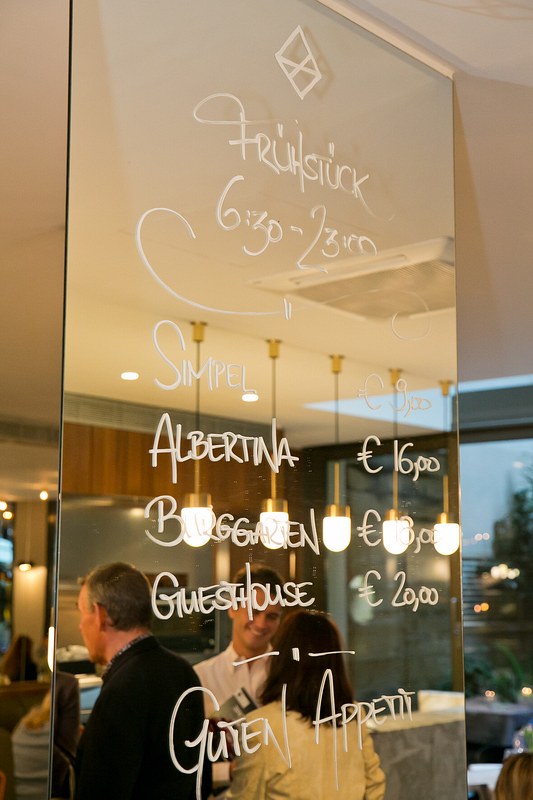 FRÜHSTÜCK
6:30 - 23:00
SIMPEL € 9,00
ALBERTINA € 16,00
BURGGARTEN € 18,00
GUESTHOUSE € 20,00
GUTEN APPETIT